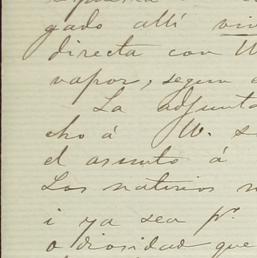 gado allí
directa con W
vapor, segun
La adjunta
cho á W. s
el asunto á
Los nativos n
i ya sea pr.
odiosidad que